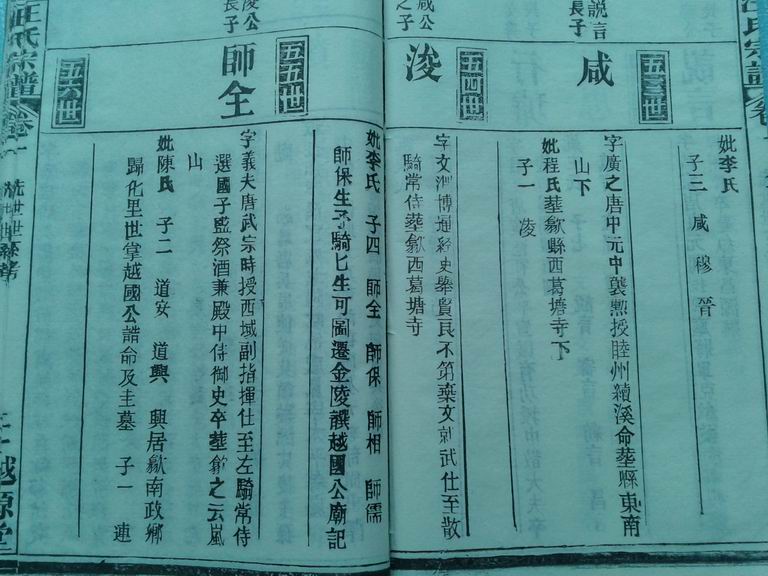 汪氏宗譜
說言
長子
妣李氏
子三 咸 穆 晉
五三世
咸
字廣之唐中元中襲勲授睦州績溪命葬縣東南
山下
妣程氏葬歙縣西葛塘寺下
子一 凌
咸公
之子
五四世
浚
字文淵博通經史舉賢良不第棄文就武仕至散
騎常侍葬歙西葛塘寺
妣李氏 子四 師全 師保 師相 師儒
師保生子騎匕生可圖遷金陵譔越國公廟記
浚公
長子
五五世
師全
字義夫唐武宗時授西域副指揮仕至左騎常侍
選國子監祭酒兼殿中侍御史卒葬歙之云嵐
山
妣陳氏 子二 道安 道興 興居歙南政鄉
歸化里世掌越國公誥命及圭墓 子一 連
五六世
汪氏宗譜
越源堂